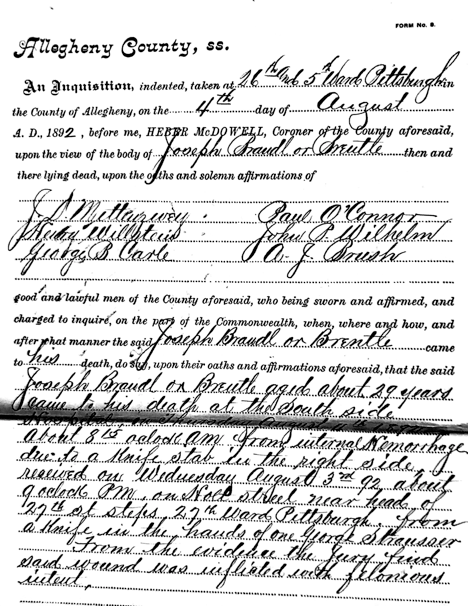 FORM No. 9.
Allegheny County, ss.
An Inquisition, indented, taken at 26th and 5th Wards Pittsburgh in
the County of Allegheny, on the 4th day of August
A. D., 1892, before me, HEBER McDOWELL, Coroner of the County aforesaid,
upon the view of the body of Joseph Brandl or Brentle then and
there lying dead, upon the oaths and solemn affirmations of
Paul O'Connor
Henry Willstein John P. Wilhelm
George B. Carle A. J. Brush
good and lawful men of the County aforesaid, who being sworn and affirmed, and
charged to inquire, on the part of the Commonwealth, when, where and how, and
after what manner the said Joseph Brandl or Brentle came
to his death, do say, upon their oaths and affirmations aforesaid, that the said
Joseph Brandl or Brentle aged about 29 years
came to his death at the South side
Thursday August 4th
about 8 15 oclock AM from internal Hemorrhage
due to a Knife stab in the right side,
received on Wednesday August 3rd 92 about
9 oclock PM, on Hoch street near head of
27th St steps, 27th Ward Pittsburgh, from
a Knife in the hands of one George Strausser
From the evidence the Jury find
said wound was inflicted with felonious
intent.